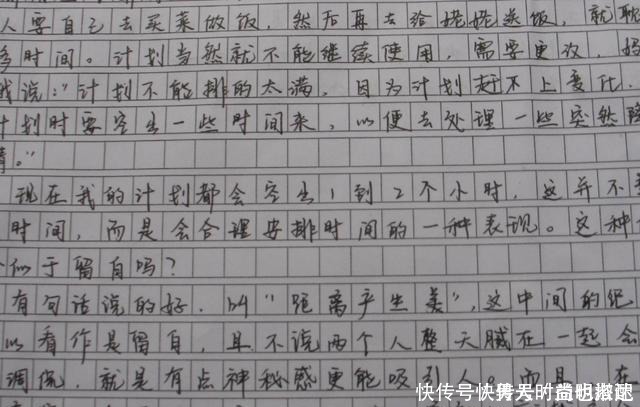 人要自己去买菜做饭，然后再去给姥姥送饭，就耽
多时间。计划当然就不能继续使用，需要更改，妈
我说："计划不能排的太满，因为计划赶不上变化，
计划时要空出一些时间来，以便去处理一些突然
情。"
现在我的计划都会空出1到2个小时，这并不
时间，而是会合理安排时间的一种表现。这种
似于留白吗？
有句话说的好，叫"距离产生美"，这中间的
以看作是留白，且不说两个人整天腻在一起会
调侃，就是有点神秘感更能吸引人。而且，在
快传号